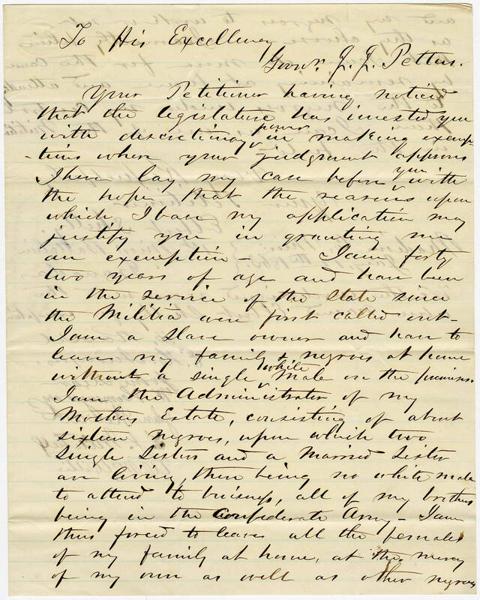 To His Excellency
Govnr. J. J. Pettus.
Your Petitioner having noticed
that the legislature has invested you
with discretionary power in making exemp
-tions where your judgment approves
I here lay my case before you with
the hope that the reasons upon
which I base my application may
justify you in granting me
an exemption — I am forty
two years of age and have been
in the service of the State since
the Militia were first called out-
I am a Slave owner and have to
leave my family & negroes at home
without a single white Male on the premises.
I am the Administrator of my
Mothers Estate, consisting of about
sixteen negroes, upon which two
single sisters and a Married Sister
are living, there being no white male
to attend to business, all of my brothers
being in the Confederate Army - I am
thus forced to leave all the females
of my family at home, at the mercy
of my own as well as other negroes